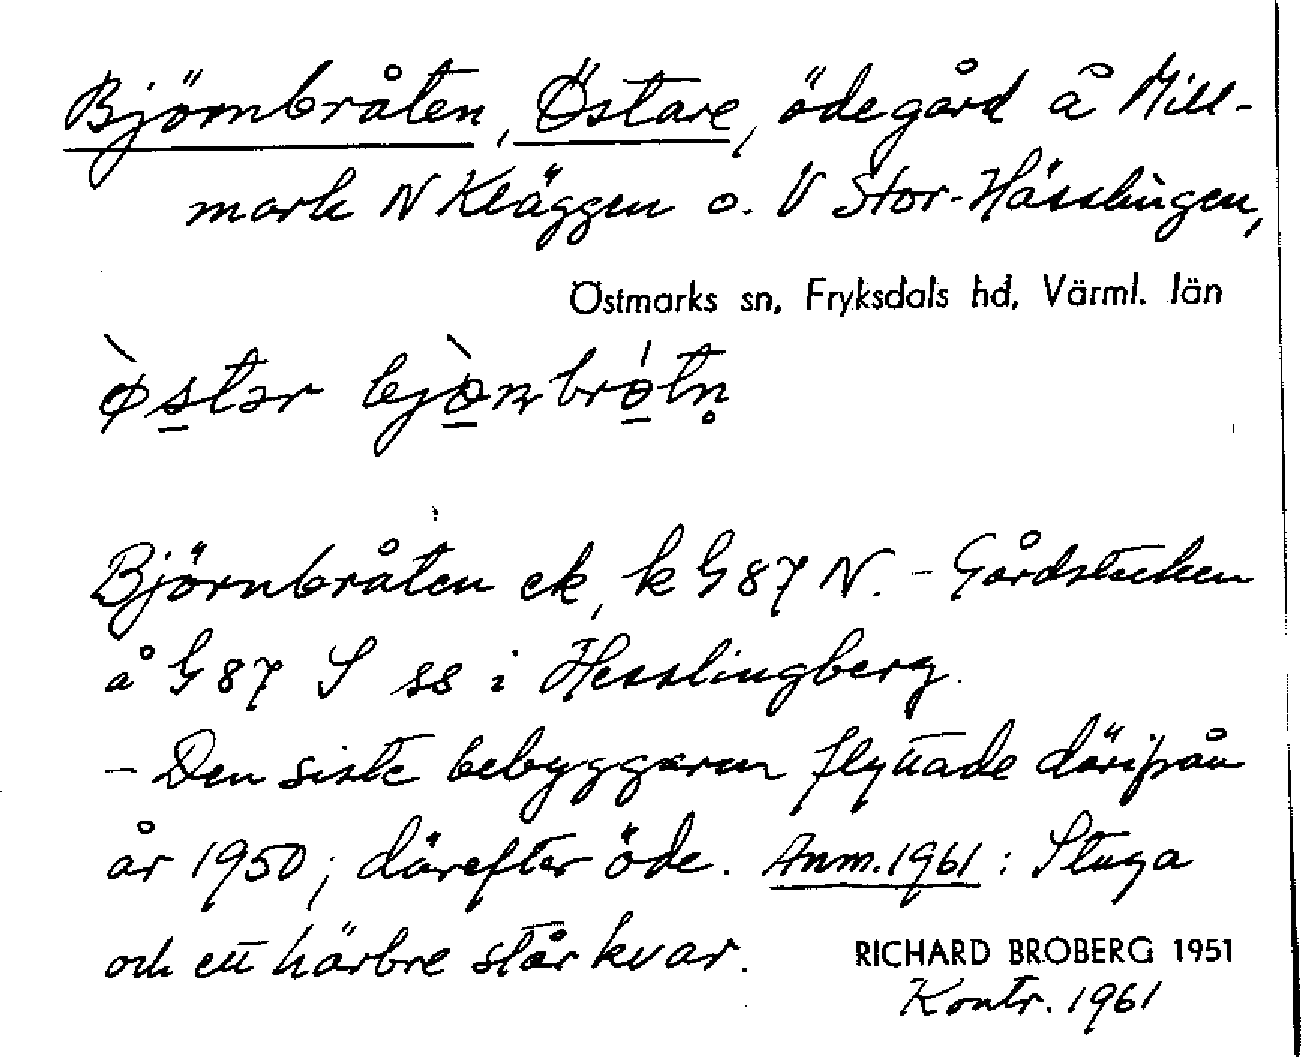 Björnbråten, Östare, ödegård å Mill-
mark N Kläggen o. V Stor-Hässlingen,
Östmarks sn, Fryksdals hd, Värml. län
ø̀stər bjò̱n brótn̥
Björnbråten ek, k G87 N. - Gårdstecken
å G87 S ss i Hesslingberg.
- Den siste bebyggaren flyttade därifrån
år 1950; därefter öde. Anm. 1961: Stuga
och ett härbre står kvar.
RICHARD BROBERG 1951
Kontr. 1961